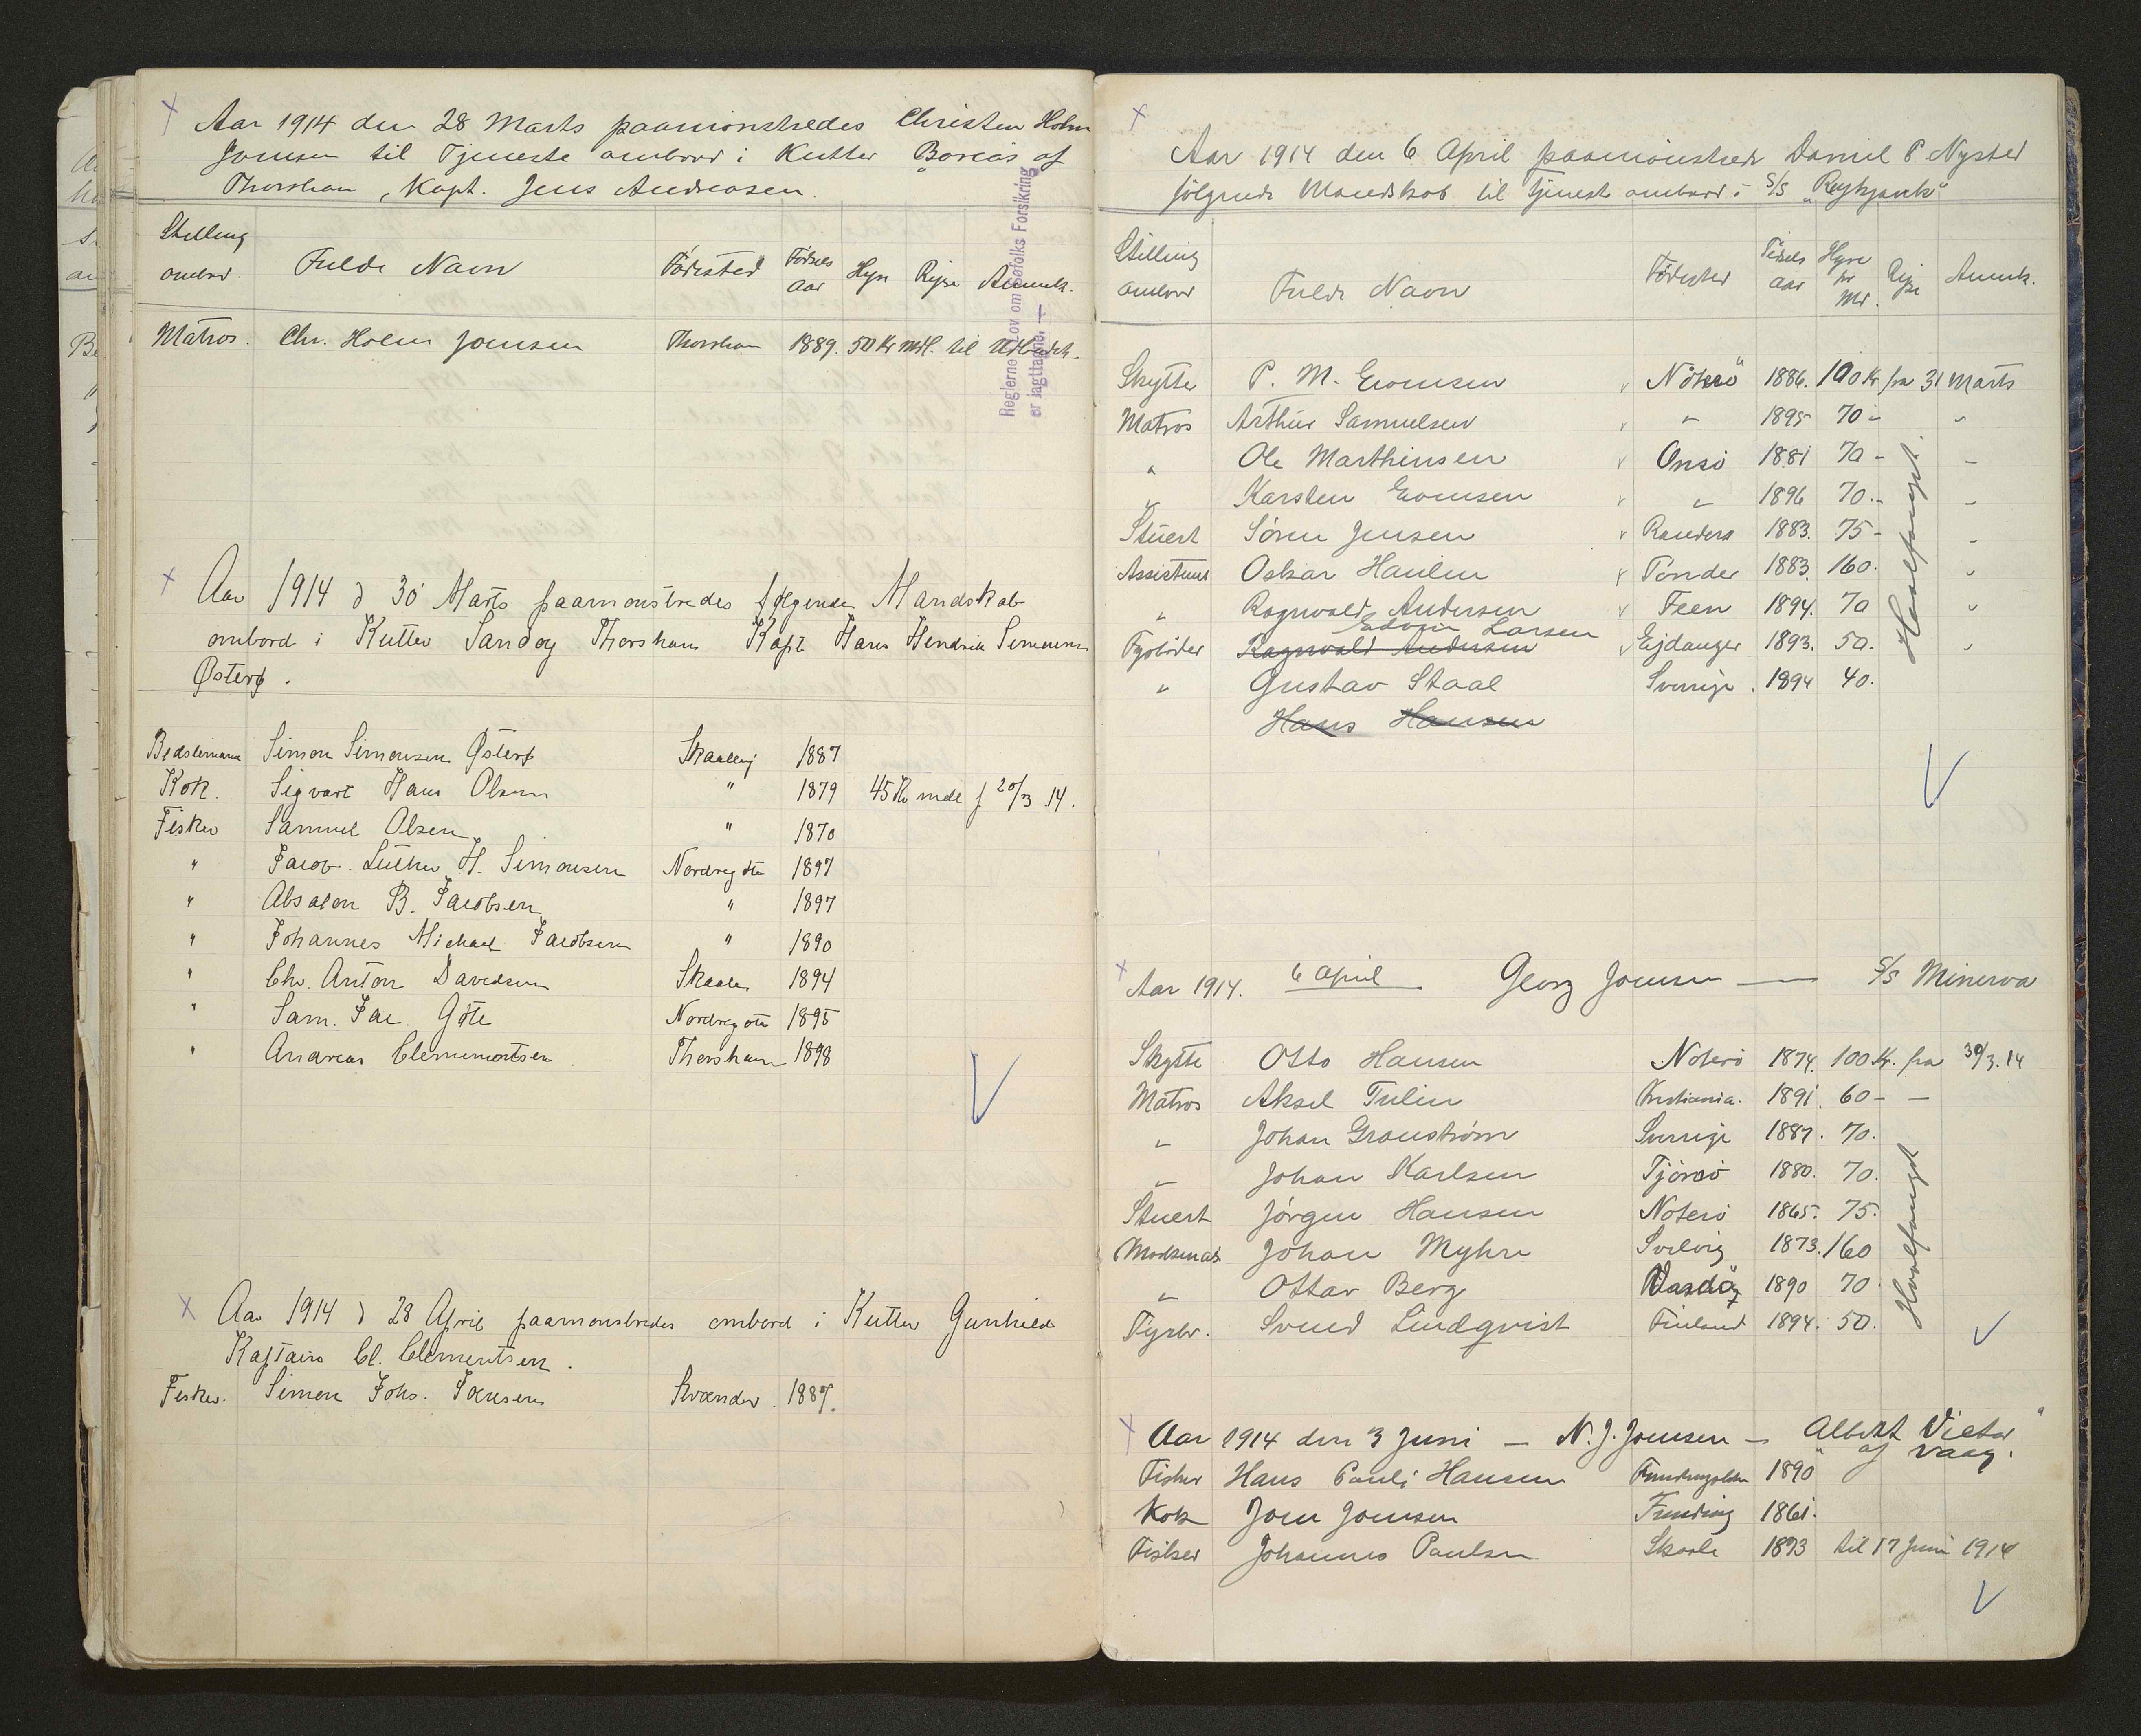 Aar 1914 den 28 Marts paamönstredes Christen Holm
Joensen til Tjeneste ombord i Kutter "Boreas" af
Thorshavn, Kapt. Jens Andreasen.
Reglerne i Lov om Søfolks Forsikring
er iagttagne.
Stilling ombord. Fulde Navn Födested Födsels Aar Hyre Rejse Anmrk.
Matros. Chr. Holm Joensen Thorshavn 1889. 50 Kr Mdl. til
Aar 1914 d 30 Marts paamonstredes følgende Mandskab
ombord i Kutter Sandoy Thorshavn Kapt Hans Hendrik Simonsen
Østerø.
Bedstemann Simon Simonsen Østerø Skaalevig 1887
Kok. Sigvart Hans Olsen " 1879 45 Kr mdl f 20/3 14.
Fisker Samuel Olsen " 1870
" Jacob Luther H. Simonsen Nordregöte 1897
" Absalon B. Jacobsen " 1897
" Johannes Michael Jacobsen " 1890
" Chr. Anton Davidsen Skaale 1894
" Sam. Jac. Göte Nordregöte 1895
" Andreas Clementsen. Thorshavn 1898
Aar 1914 d 28 April paamonstredes ombord i Kutter Gunhild
Kaptain Cl. Clementsen.
Fisker. Simon Johs. Joensen Kvander. 1887.
Aar 1914 den 6 April paamönstrede Daniel P Nysted
følgende Mandskab til tjeneste ombord i S/S "Reykjavik"
Stilling ombord Fulde Navn Födested Födsels aar Hyre pr Md. Rejse Anmrk.
Skytte P. M. Evensen Nöterö 1886. 100 Kr fra 31 Marts
Matros Arthur Samuelsen " 1895 70 - "
" Ole Marthinsen Onsö 1881 70 - -
" Karsten Evensen " 1896 70. - -
Stuert Sören Jensen Randers 1883. 75 - -
Assistent Oskar Haulin Tönder 1883. 160. "
" Ragnvald Andersen Feen 1894. 70 "
Edvin Larsen
Fyrböder Ragnvald Andersen Ejdanger 1893. 50. "
" Gustav Staal Sverrige. 1894 40.
Hans Hansen
Hvalfangst.
Aar 1914. 6 April Georg Joensen — S/S Minerva
Skytte Otto Hansen Noterö 1874. 100 Kr. fra 30/3.14
Matros Aksel Tulin Kristiania. 1891. 60 - -
" Johan Granström Sverrige 1887. 70.
" Johan Karlsen Tjömö 1880. 70.
Stuert Jörgen Hansen Noterö 1865. 75.
Johan Myhre Svelvig 1873. 160
" Ottar Berg 1890 70.
Fyrbr. Svend Lindqvist Finland 1894. 50.
Hvalfangst
Aar 1914 den 3 Juni — N. J. Joensen — "Albert Victor"
af Vaag.
Fisker Hans Pauli Hansen 1890
Kok Joen Joensen Funding 1861.
Fisker Johannes Paulsen Skaale 1893 til 17 Juni 1914